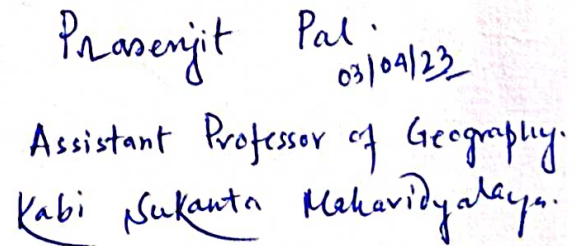 Prasenjit Pal.
03/04/23
Assistant Professor of Geography.
Kabi Sukanta Mahavidyalaya.